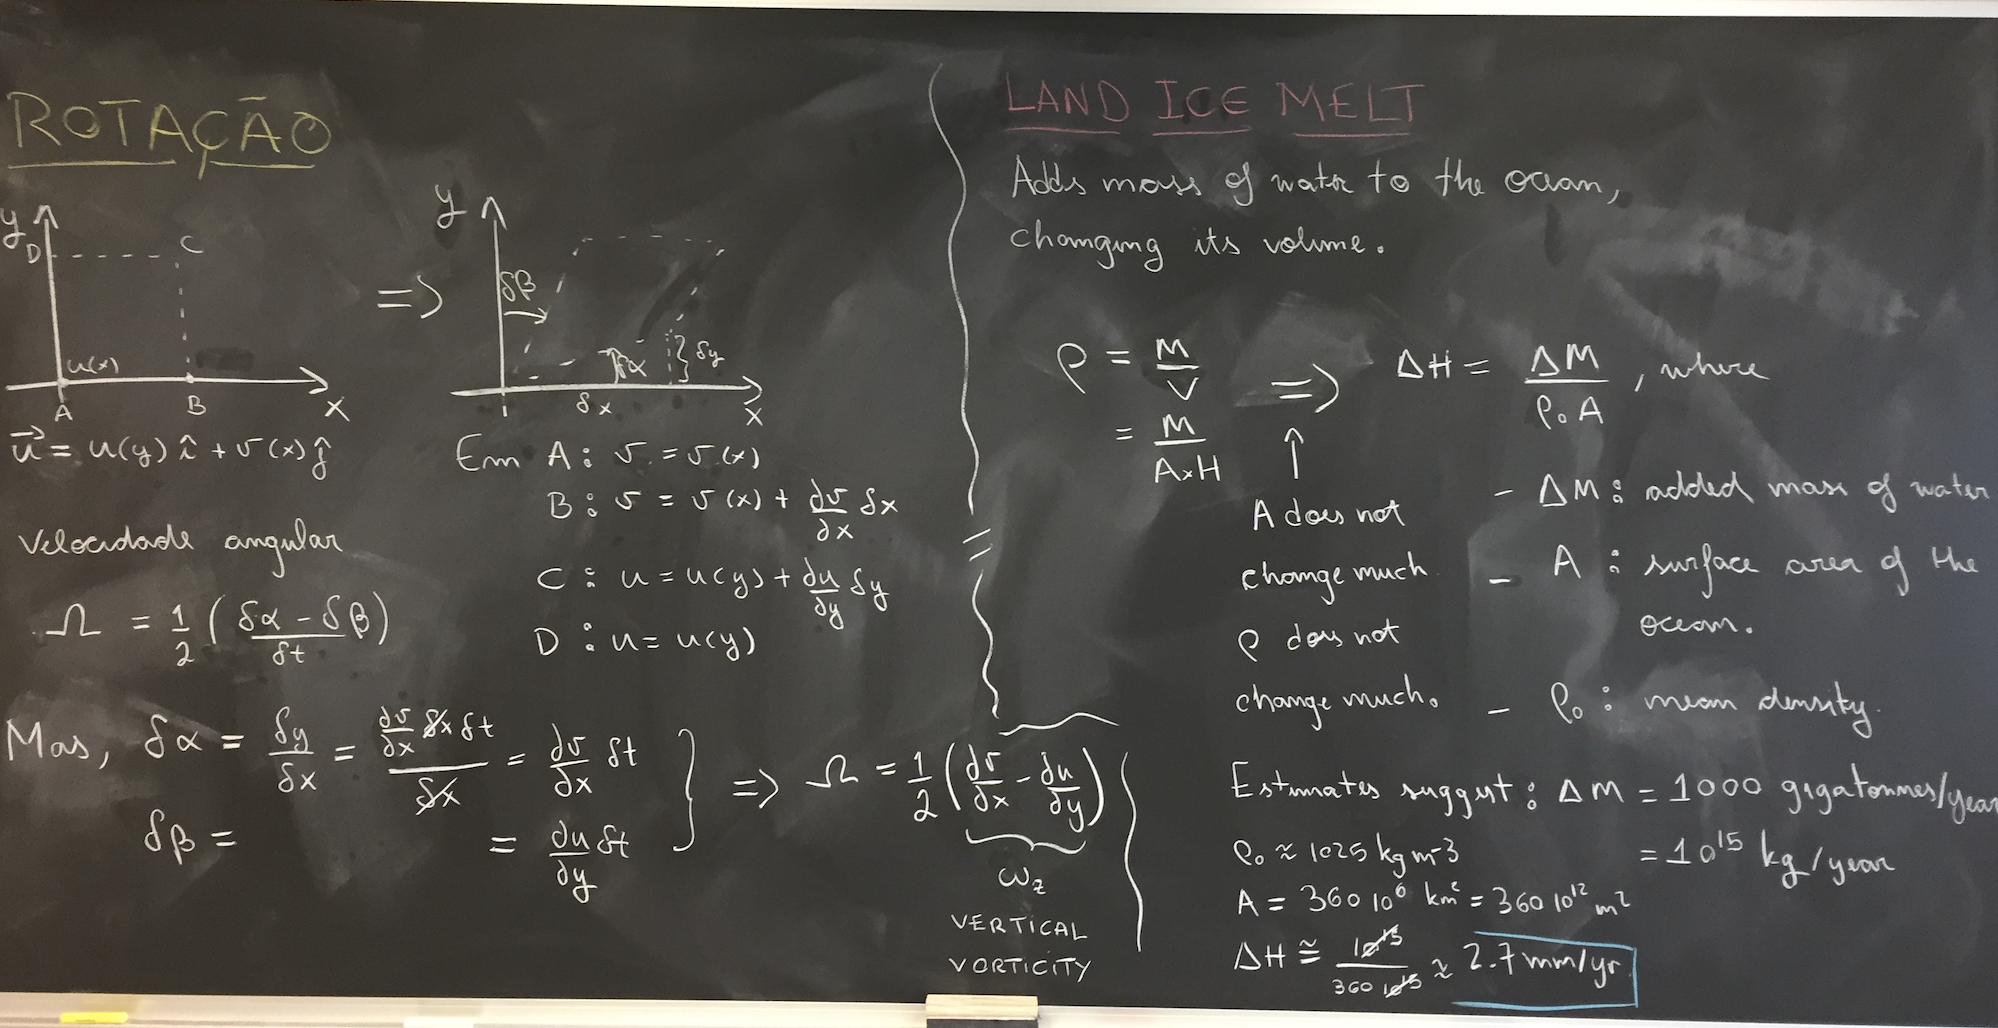 ROTAÇÃO
y
D
C
u(x)
A
B
x
=>
y
δβ
δα
δy
δx
x
u⃗ = u(y) î + v(x) ĵ
Em A : v = v(x)
B : v = v(x) + ∂v/∂x δx
C : u = u(y) + ∂u/∂y δy
D : u = u(y)
Velocidade angular
Ω = 1/2 (δα - δβ / δt)
Mas, δα = δy/δx = ∂v/∂x δx δt / δx = ∂v/∂x δt
δβ = = ∂u/∂y δt
=> Ω = 1/2 (∂v/∂x - ∂u/∂y)
ωz
VERTICAL
VORTICITY
LAND ICE MELT
Adds mass of water to the ocean,
changing its volume.
ρ = M/V
= M/A×H
=> ΔH = ΔM/ρ₀A , where
↑
A does not
change much
ρ does not
change much.
- ΔM : added mass of water
- A : surface area of the
ocean.
- ρ₀ : mean density.
Estimates suggest : ΔM = 1000 gigatonnes/year
= 10¹⁵ kg/year
ρ₀ ≈ 1025 kg m-3
A = 360 10⁶ km² = 360 10¹² m²
ΔH ≅ 10¹⁵/360 10¹⁵ ≈ 2.7 mm/yr